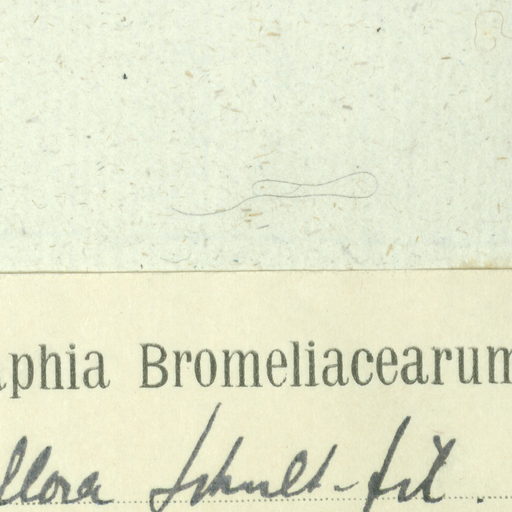 aphia Bromeliacearum
llora Schult-fil.